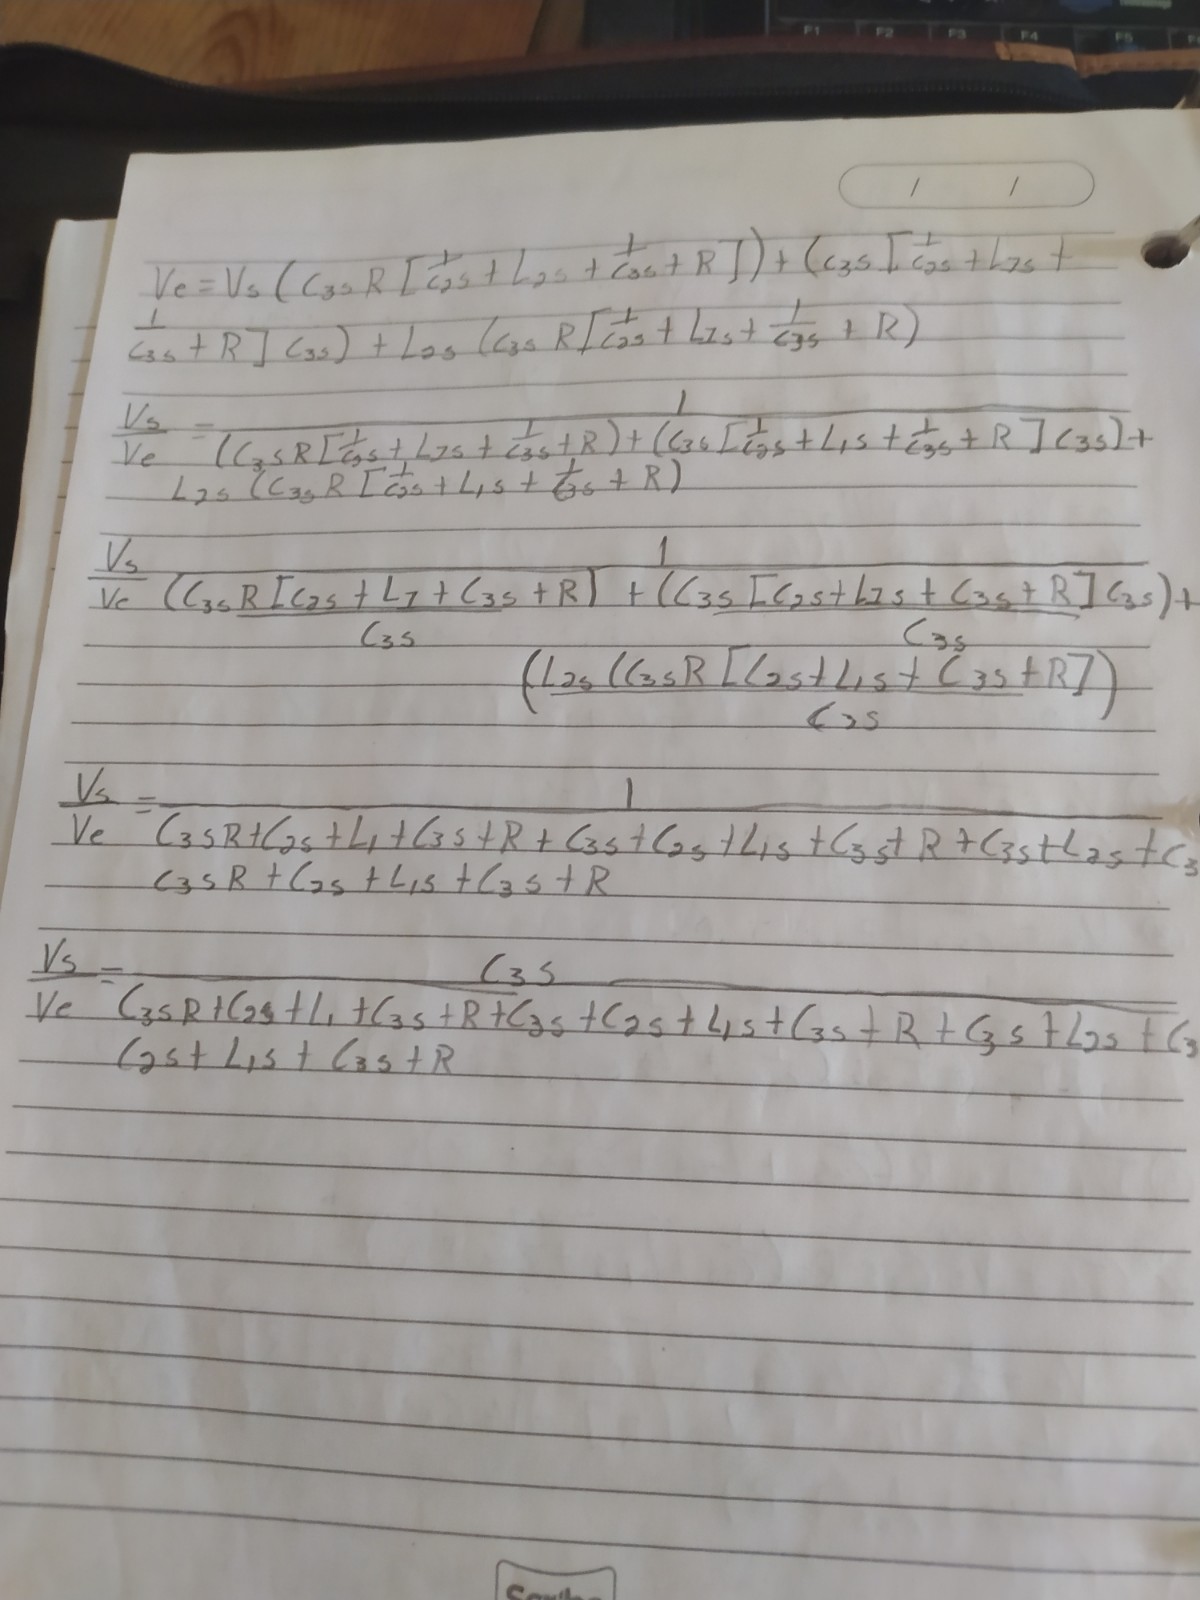 F1 F2 F3 F4 F5
/ /
Ve = Vs (C3s R [1/C2s + L2s + 1/C3s + R]) + (C3s [1/C2s + L2s +
1/C3s + R] C3s) + L2s (C3s R [1/C2s + L1s + 1/C3s + R)
Vs/Ve = 1/
(C3sR[1/C2s + L2s + 1/C3s + R) + (C3s [1/C2s + L1s + 1/C3s + R] C3s) +
L2s (C3sR [1/C2s + L1s + 1/C3s + R)
Vs/Ve 1/
(C3sR[C2s + L1 + C3s + R) + (C3s [C2s + L1s + C3s + R] C3s) +
C3s C3s
(L2s (C3sR [C2s + L1s + C3s + R])
C2s
Vs/Ve = 1/
C3sR + C2s + L1 + C3s + R + C3s + C2s + L1s + C3s + R + C3s + L2s + C3
C3sR + C2s + L1s + C3s + R
Vs/Ve = C3s/
C3sR + C2s + L1 + C3s + R + C3s + C2s + L1s + C3s + R + C3s + L2s + C3
C2s + L1s + C3s + R